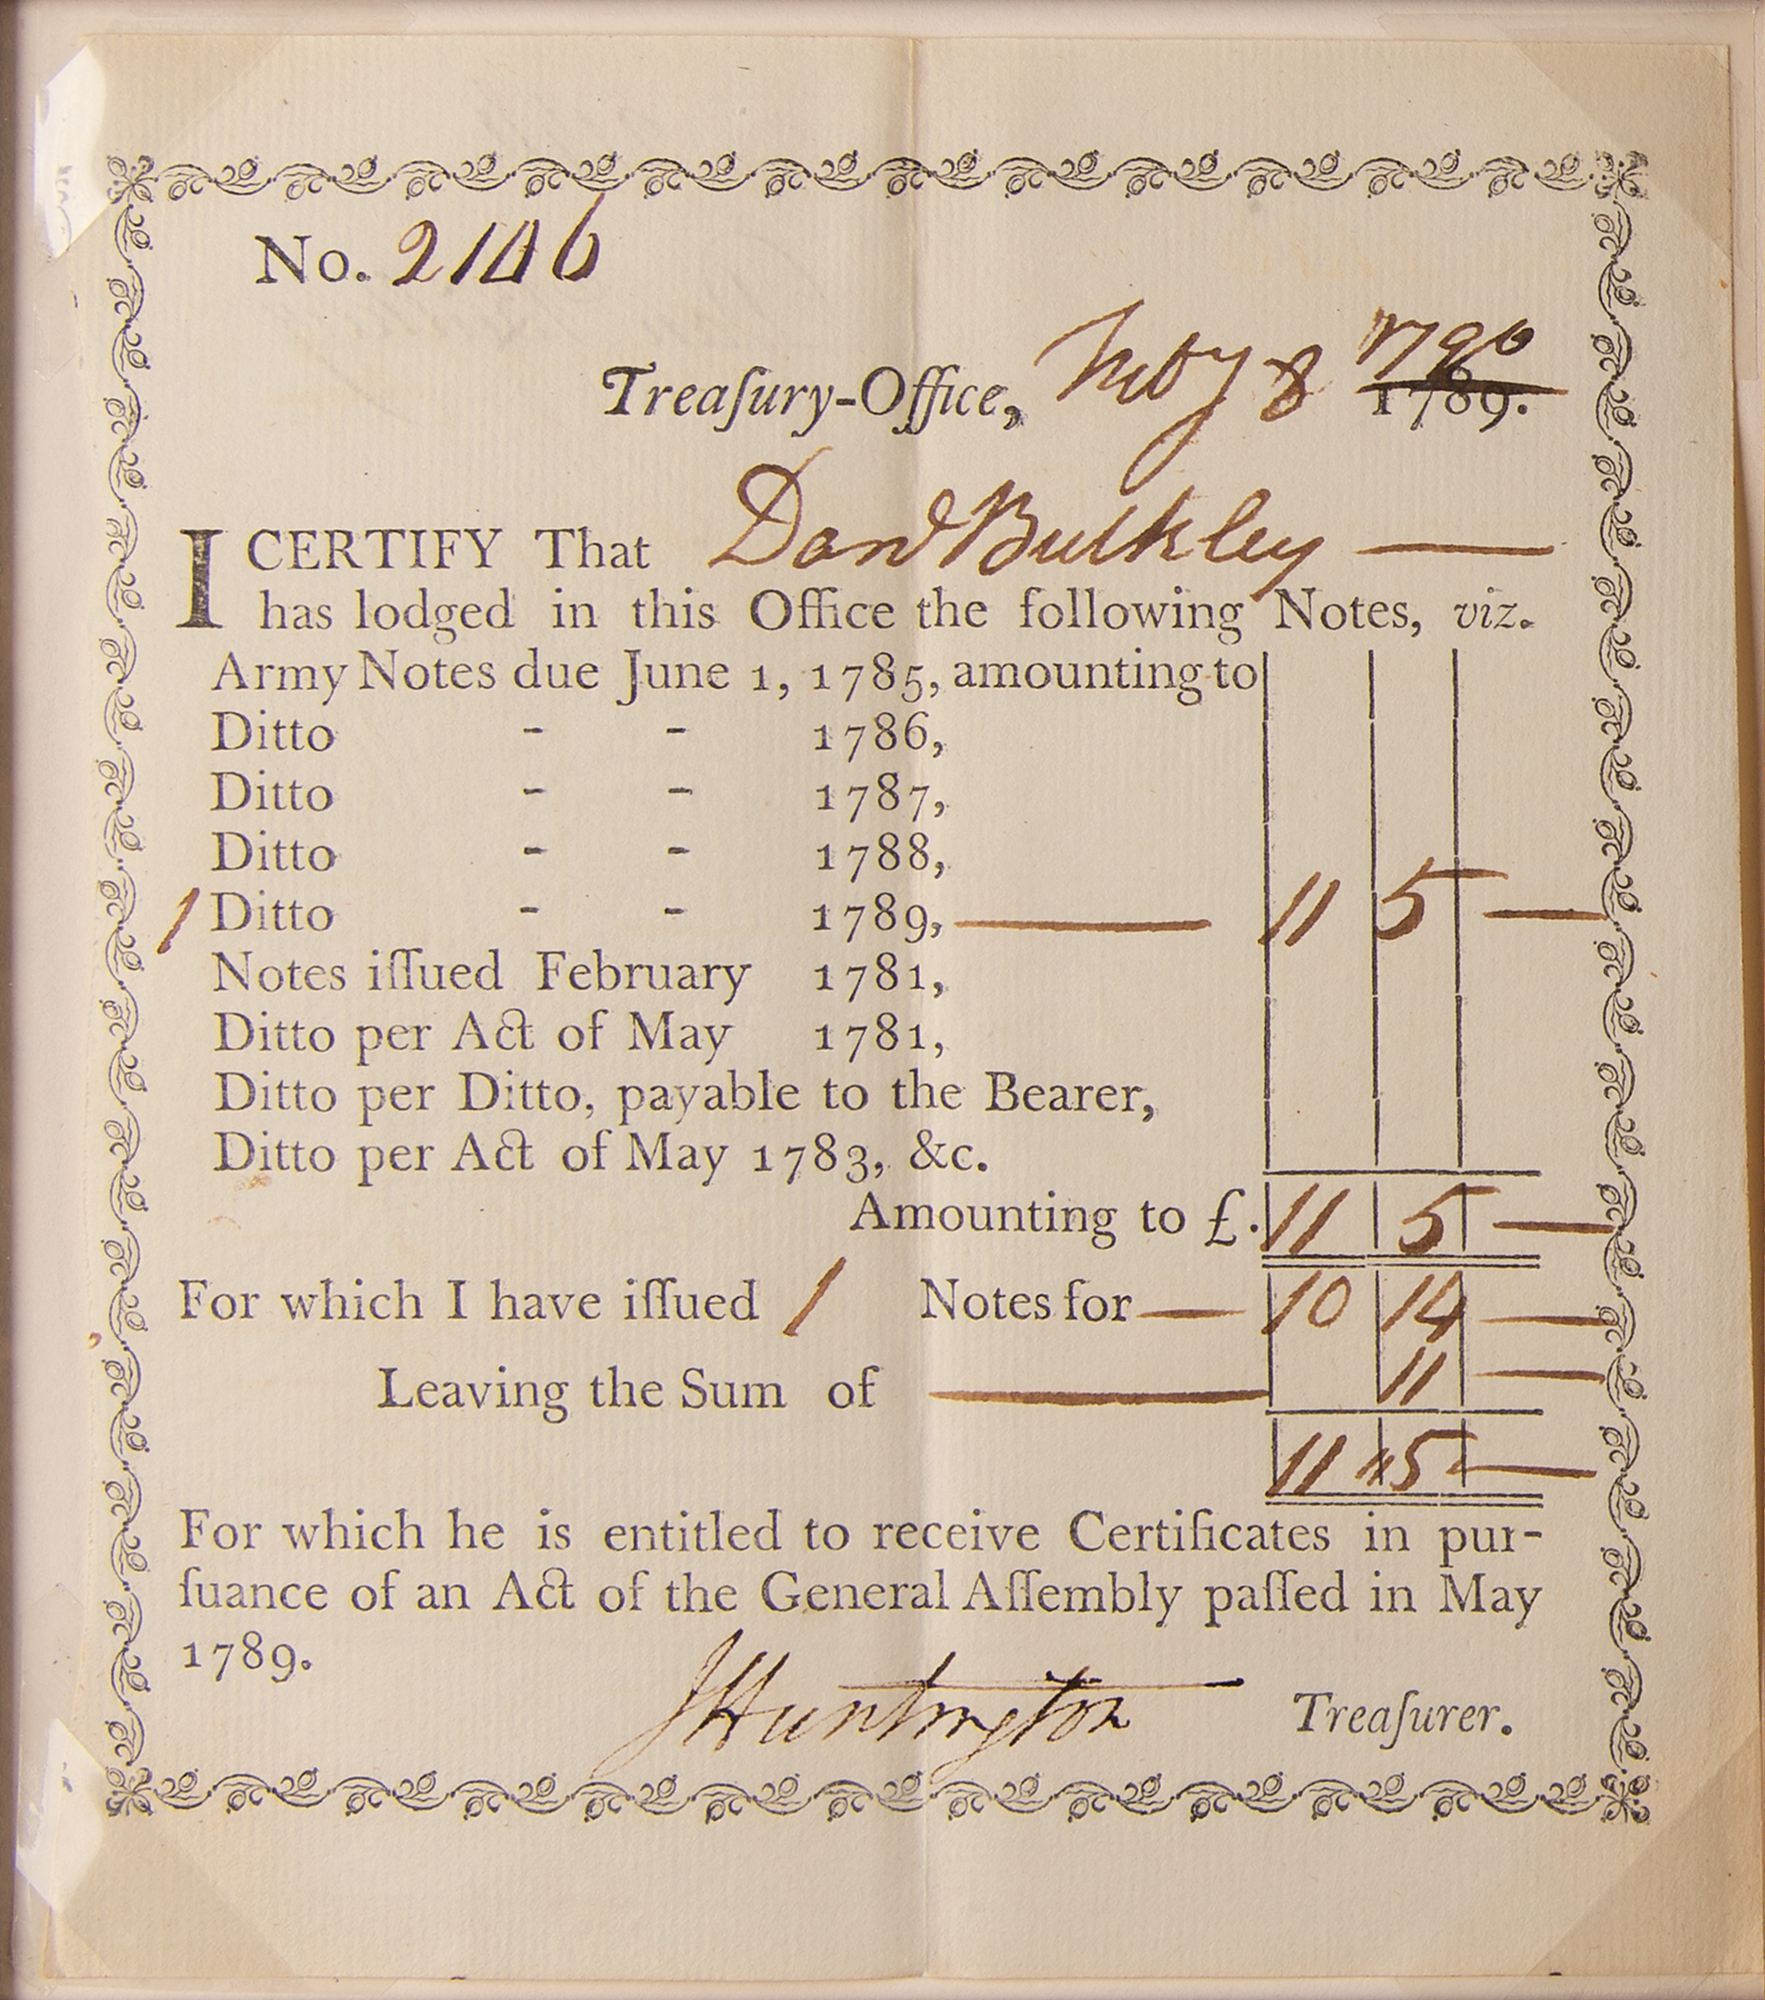 No. 2146
1790
Treaſury-Office, Feby 8 1789.
I CERTIFY That Dan Bulkley —
has lodged in this Office the following Notes, viz.
Army Notes due June 1, 1785, amounting to
Ditto - - 1786,
Ditto - - 1787,
Ditto - - 1788,
1 Ditto - - 1789, — 11 5 —
Notes iſſued February 1781,
Ditto per Act of May 1781,
Ditto per Ditto, payable to the Bearer,
Ditto per Act of May 1783, &c.
Amounting to £. 11 5 —
For which I have iſſued 1 Notes for — 10 14 —
Leaving the Sum of — 11 —
11 " 5 —
For which he is entitled to receive Certificates in pur-
ſuance of an Act of the General Aſſembly paſſed in May
1789.
J Huntington Treaſurer.